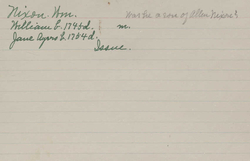 Nixon, Wm. Was he a son of Allen Nixon?
William b. 1745 d. m.
Jane Ayers b. 1754 d.
Issue.